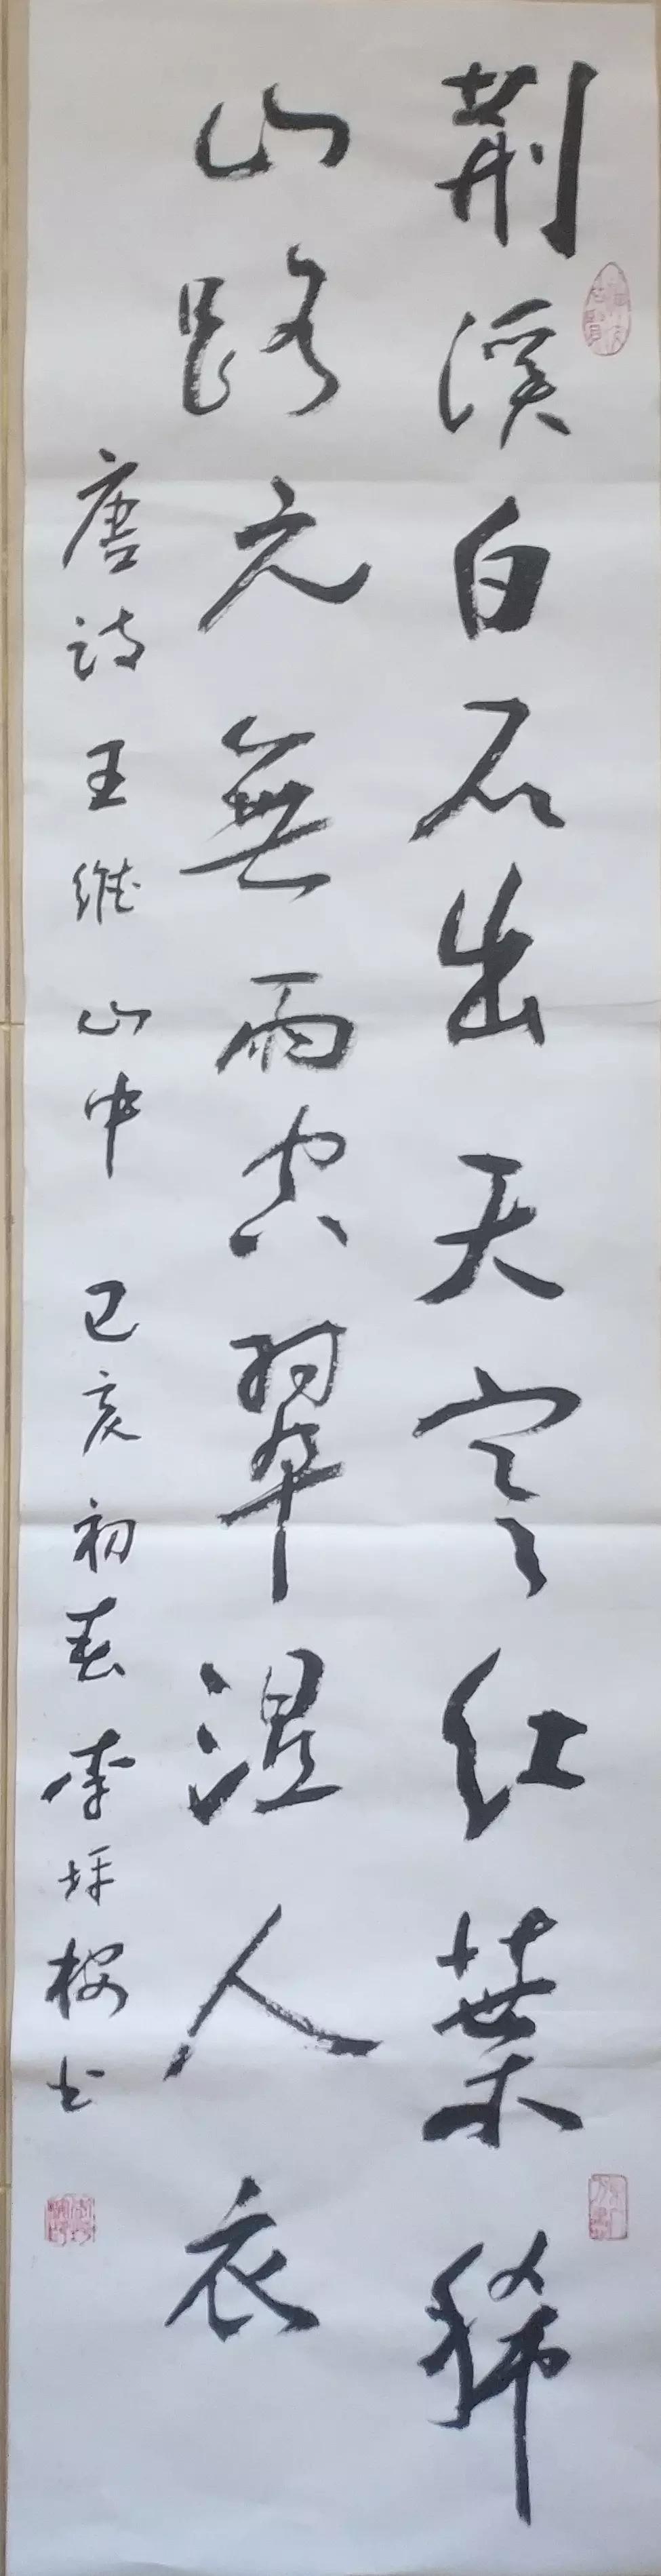 荆溪白石出天寒红葉稀
山路元無雨空翠湿人衣
唐诗王维山中己亥初春李坪樱书